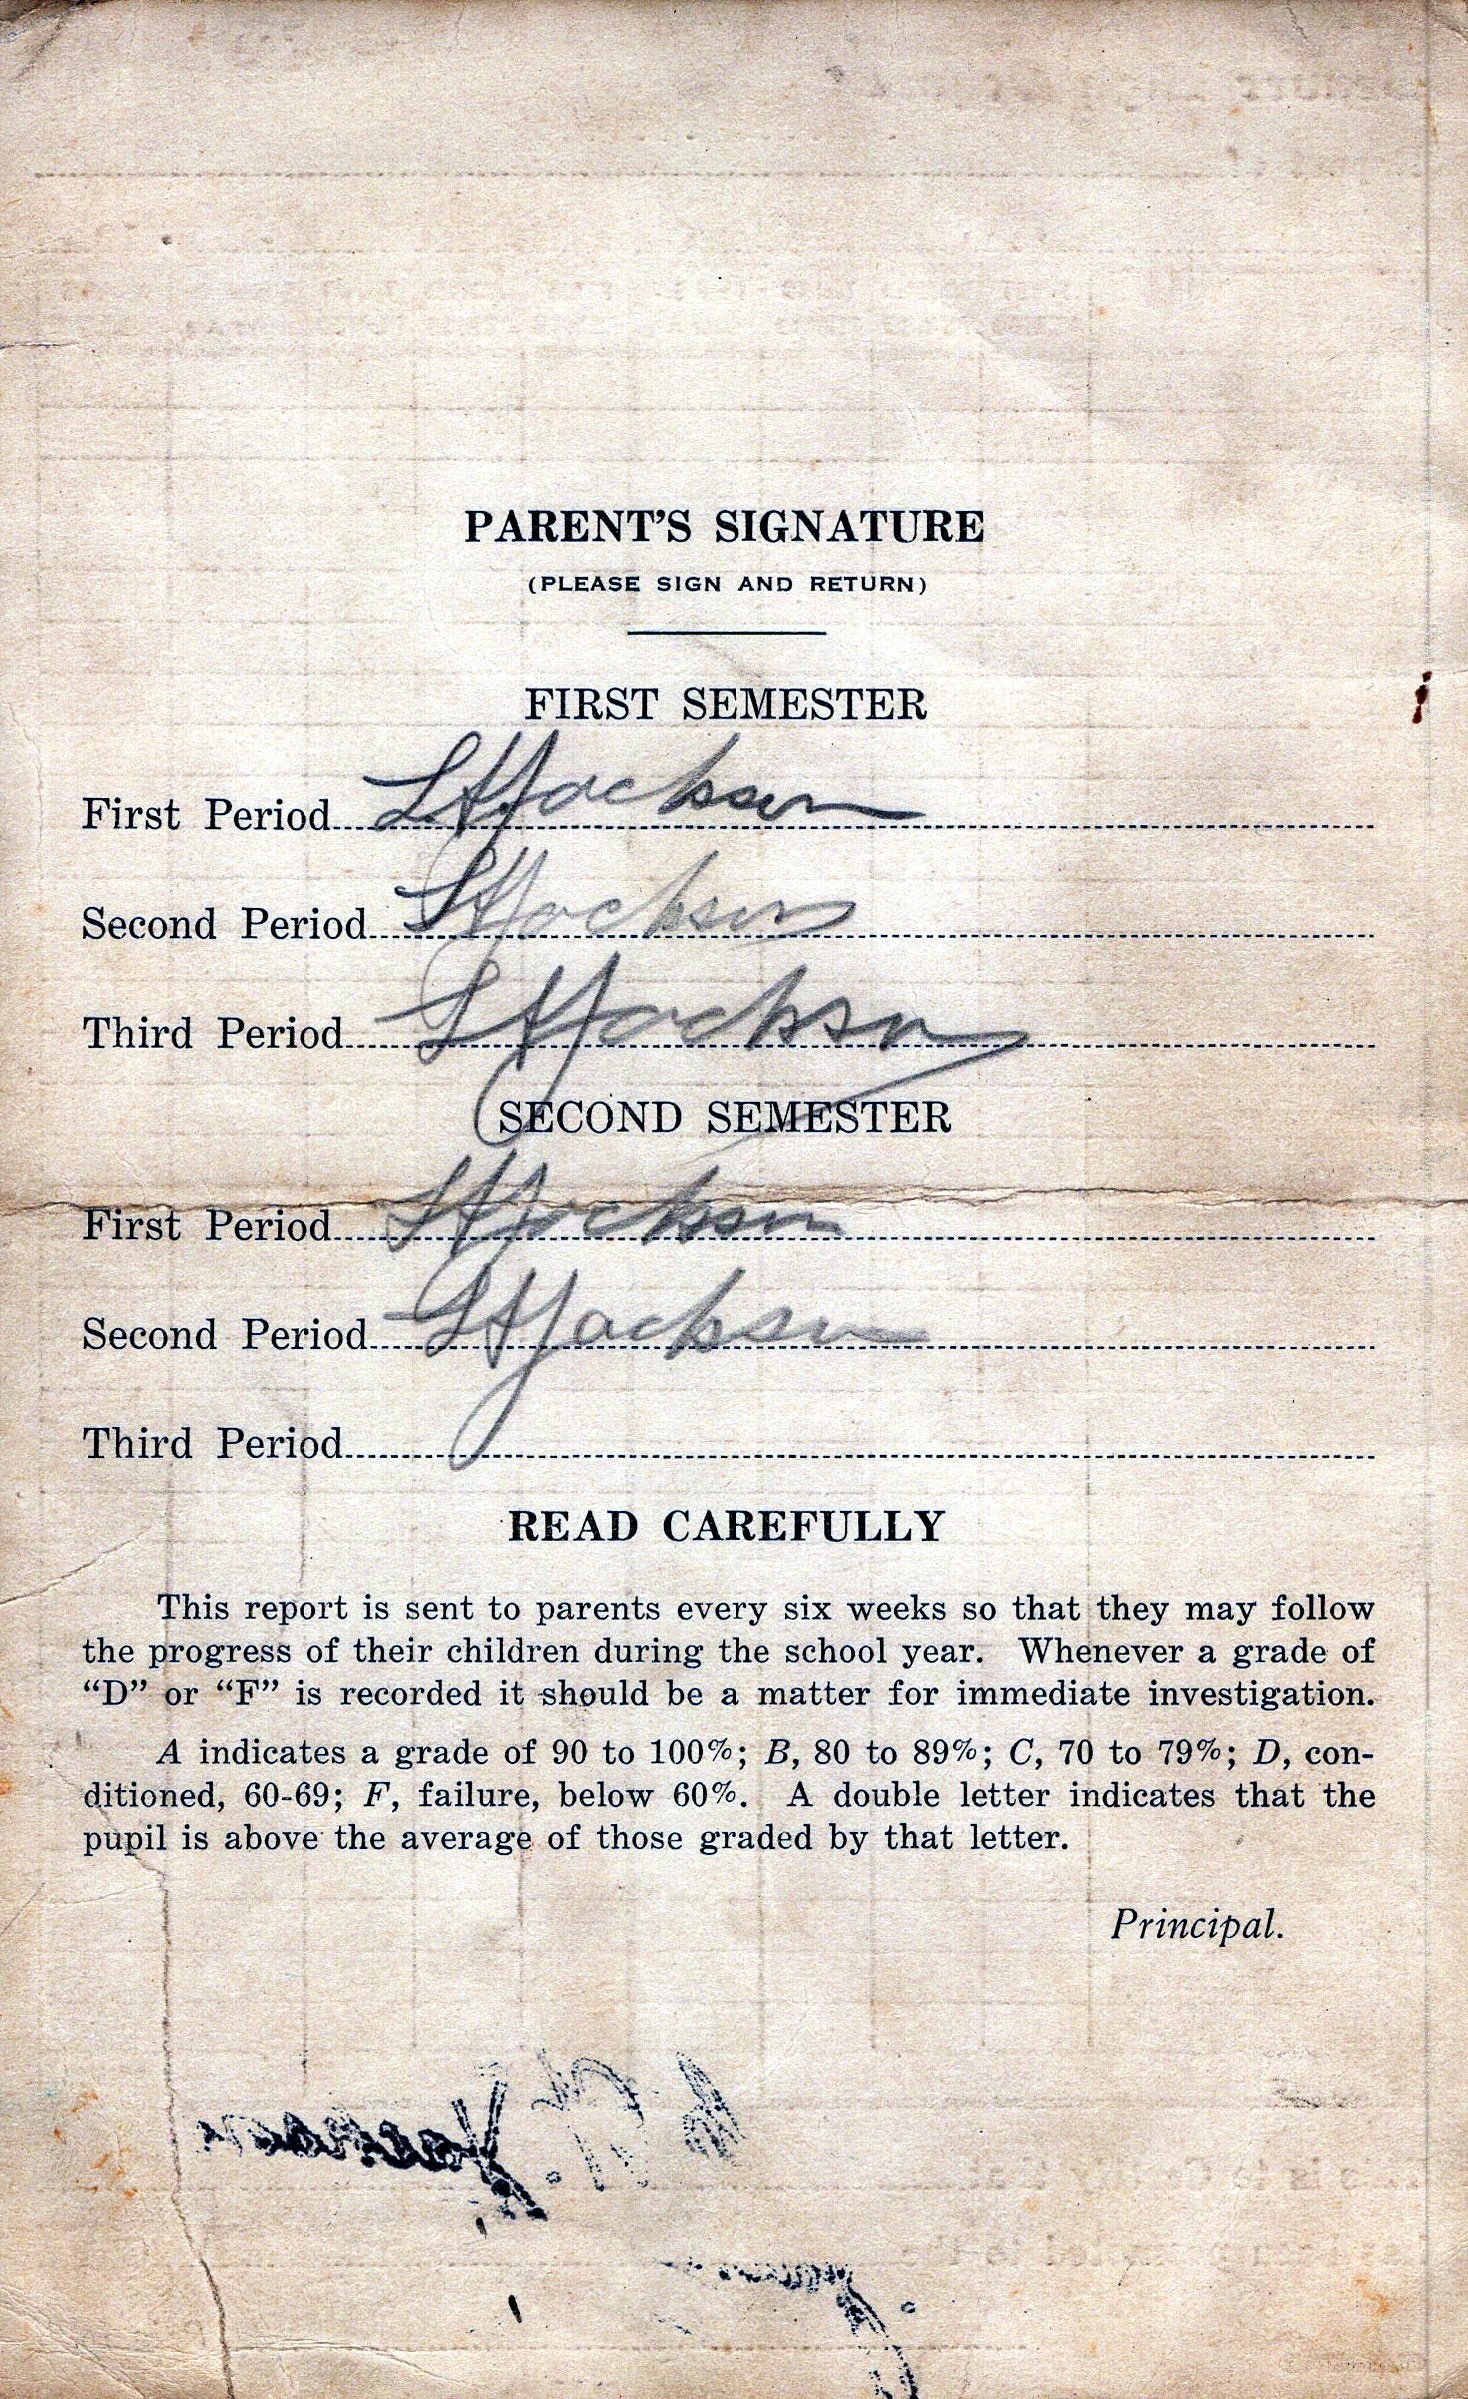 PARENT'S SIGNATURE
(PLEASE SIGN AND RETURN)
FIRST SEMESTER
First Period LHJackson
Second Period LHJackson
Third Period LHJackson
SECOND SEMESTER
First Period LHJackson
Second Period LHJackson
Third Period
READ CAREFULLY
This report is sent to parents every six weeks so that they may follow
the progress of their children during the school year. Whenever a grade of
“D” or “F” is recorded it should be a matter for immediate investigation.
A indicates a grade of 90 to 100%; B, 80 to 89%; C, 70 to 79%; D, con-
ditioned, 60-69; F, failure, below 60%. A double letter indicates that the
pupil is above the average of those graded by that letter.
Principal.